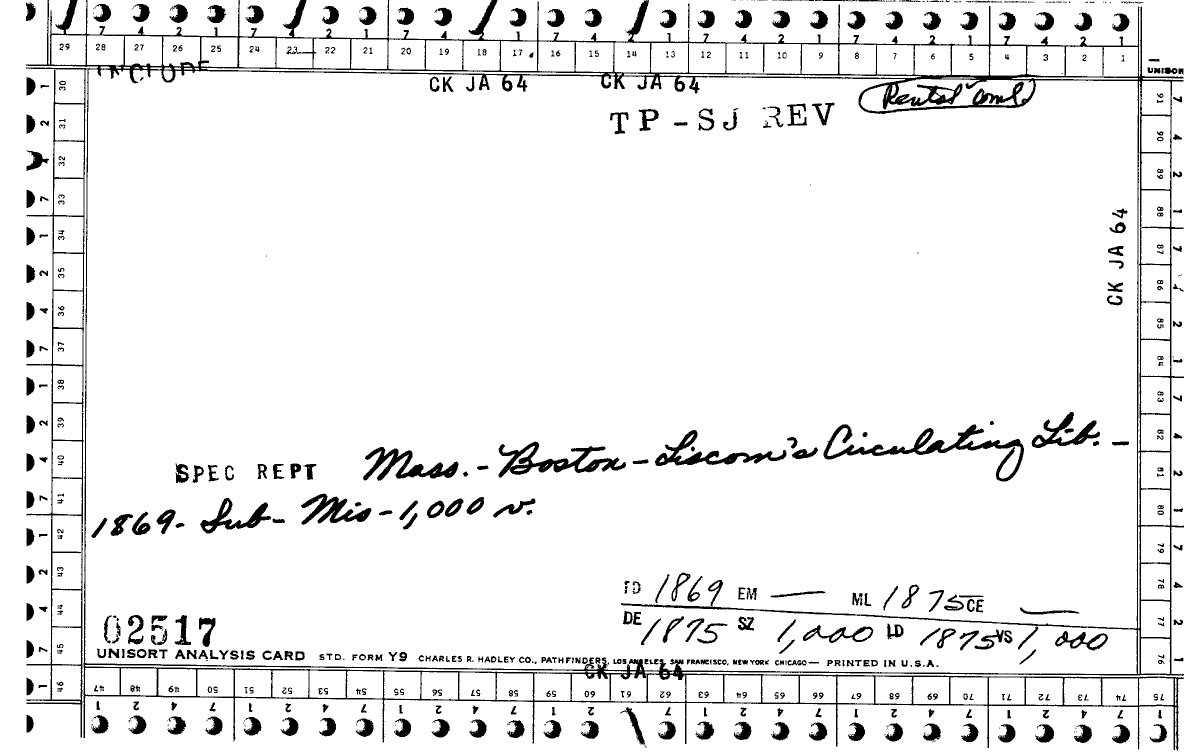 7 4 2 1 7 4 2 1 7 4 2 1 7 4 2 1 7 4 2 1 7 4 2 1 7 4 2 1
29 28 27 26 25 24 23 22 21 20 19 18 17 16 15 14 13 12 11 10 9 8 7 6 5 4 3 2 1
INCLUDE CK JA 64 CK JA 64 Rental Coml
UNISOR
TP-SJ REV
1 30
2 31
32
7 33
1 34
2 35
4 36
7 37
1 38
2 39
4 40
7 41
1 42
2 43
4 44
7 45
1 46
91 7
90 4
89 2
88 1
87 7
86
85 2
84 1
83 7
82 4
81 2
80 1
79 7
78 4
77 2
76 1
CK JA 64
SPEC REPT Mass. - Boston - Liscom's Circulating Lib. -
1869 - Sub - Mis - 1,000 v.
FD 1869 EM — ML 1875 CE —
DE 1875 SZ 1,000 LD 1875 VS 1,000
02517
UNISORT ANALYSIS CARD STD. FORM Y9 CHARLES R. HADLEY CO., PATHFINDERS, LOS ANGELES, SAN FRANCISCO, NEW YORK CHICAGO — PRINTED IN U.S.A.
CK JA 64
47 48 49 50 51 52 53 54 55 56 57 58 59 60 61 62 63 64 65 66 67 68 69 70 71 72 73 74 75
1 2 4 7 1 2 4 7 1 2 4 7 1 2 7 1 2 4 7 1 2 4 7 1 2 4 7 1